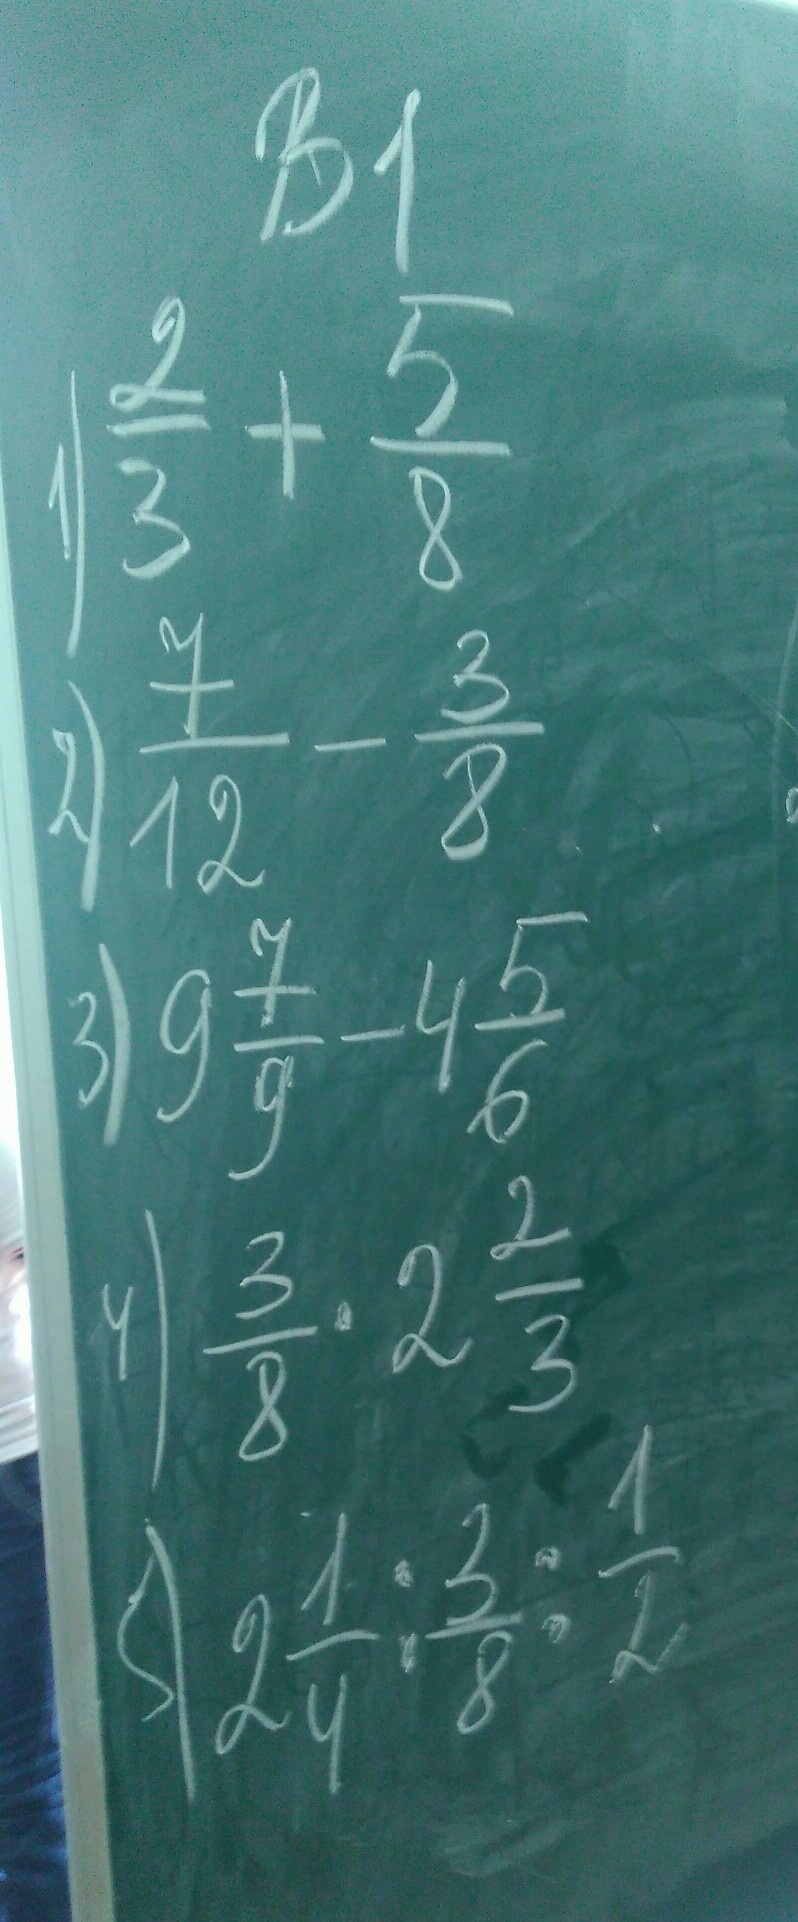 В1
1) 2/3 + 5/8
2) 7/12 - 3/8
3) 9 7/9 - 4 5/6
4) 3/8 · 2 2/3
5) 2 1/4 : 3/8 : 1/2